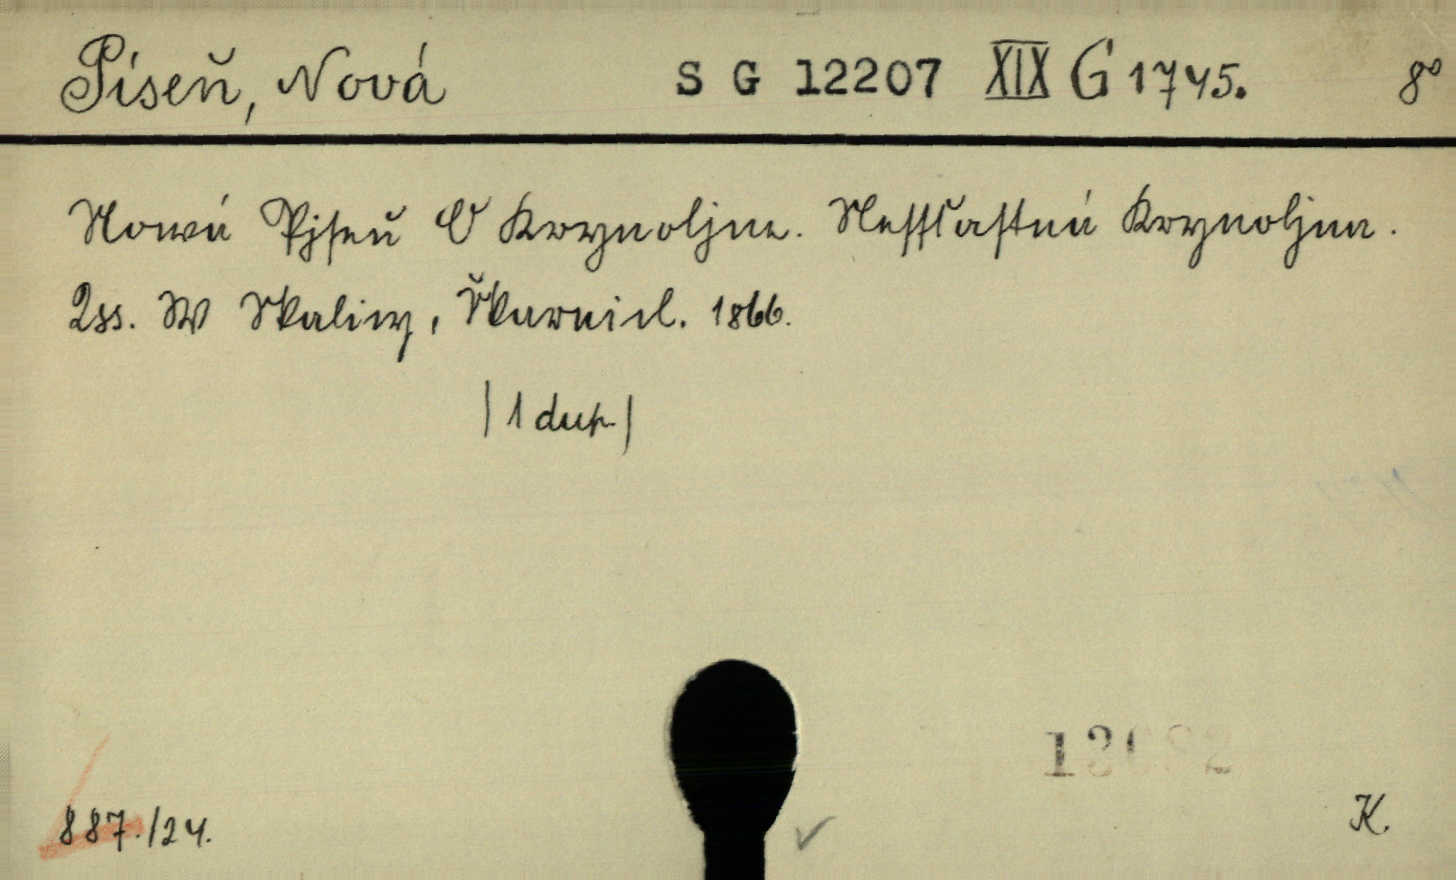 Píseň, Nová S G 12207 XIX G 1745. 8°
Nowá Pjseň O Krynoljne. Nessťastná Krynoljna.
2ss. W Skalicy, Škarnicl. 1866.
| 1 dup. |
887./24.
K.